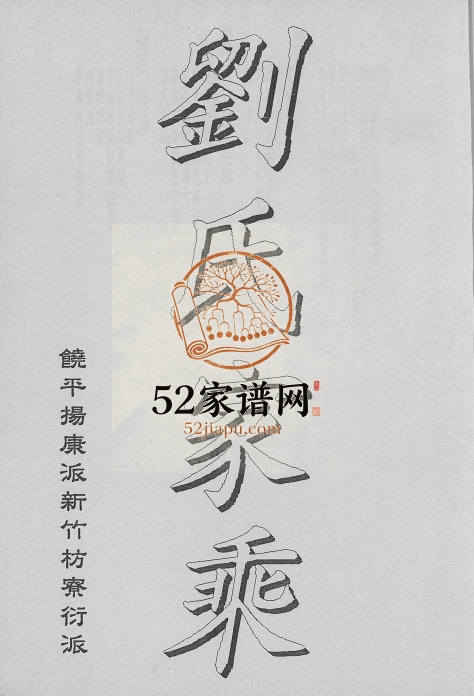 劉氏家乘
饒平揚康派新竹枋寮衍派
52家谱网
52jiapu.com